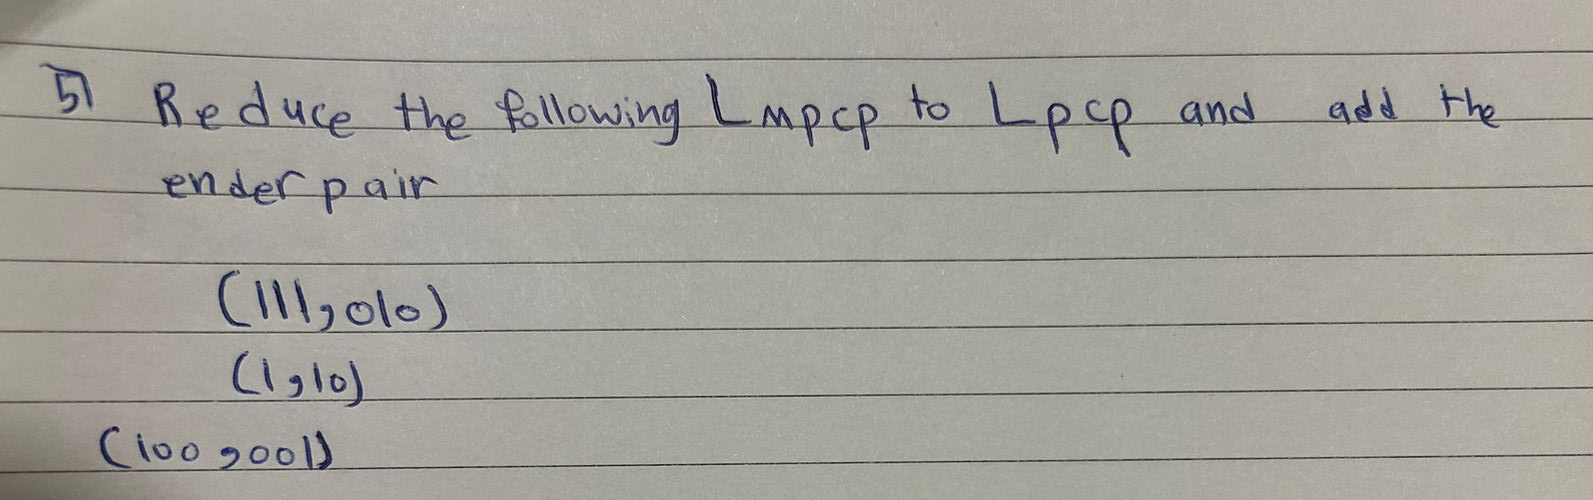 5) Reduce the following Lmpcp to Lpcp and add the
ender pair
(111,010)
(1,10)
(100,001)